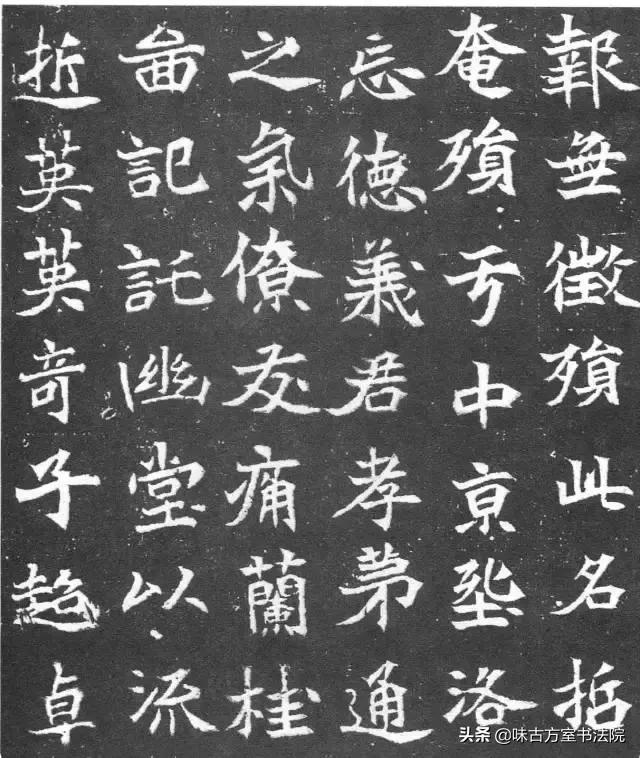 報無徵殞此名哲
奄殞亏中京洛
忘德義君孝苐通
之氣僚友痛蘭桂
啚記託幽堂以流
逝英英奇子超卓
头条 @味古方室书法院